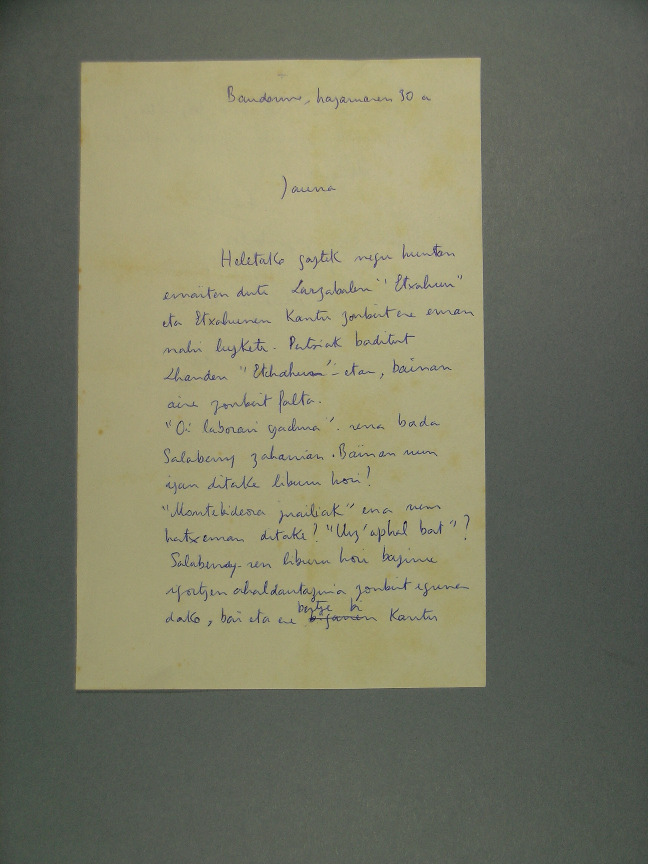 hazaroaren 30 a
Jauna
Heletako gaztek negu huntan
emaiten dute Larzabalen "Etxahun"
eta Etxahunen kantu zonbait ere eman
nahi luzkete. Patriak baditut
Lhanden "Etchahun"-etan, bainan
aire zonbait falta.
"Oi laborari gachua". rena bada
Salaberry zaharrian. Bainan nun
izan ditake liburu hori?
"Montebideora juailiak" ena nun
hatxeman ditake? "Urz'aphal bat"?
Salaberry-ren liburu hori bazinu
igortzen ahal dautazuia zonbait egunen
dako, bai eta ere bertze bi kantu